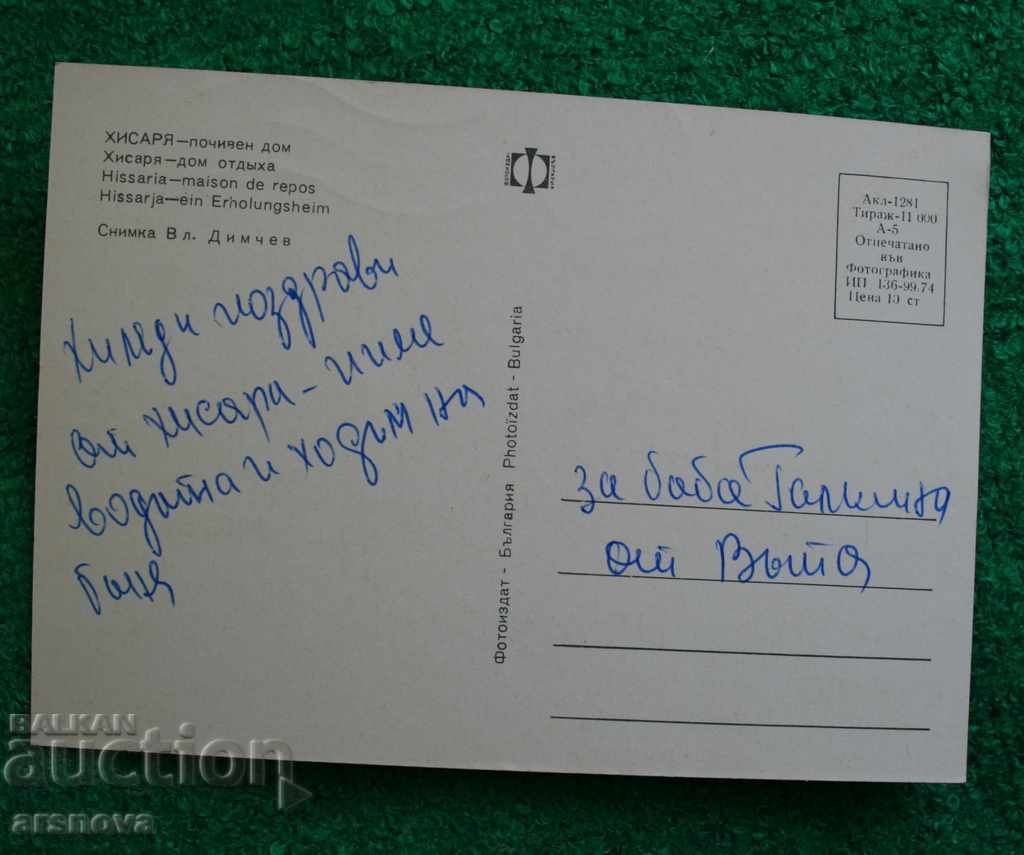 ХИСАРЯ—почивен дом
Хисаря—дом отдыха
Hissaria—maison de repos
Hissarja—ein Erholungsheim
Снимка Вл. Димчев
Хиляди поздрави
от Хисаря - пиме
водата и ходим на
баня
Фотоиздат - България Photoïzdat - Bulgaria
Акл-1281
Тираж-11 000
А-5
Отпечатано
във
Фотографика
ИП 136-99.74
Цена 10 ст
за баба
от
BALKAN
auction
arsnova